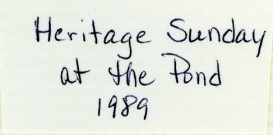 Heritage Sunday
at the Pond
1989